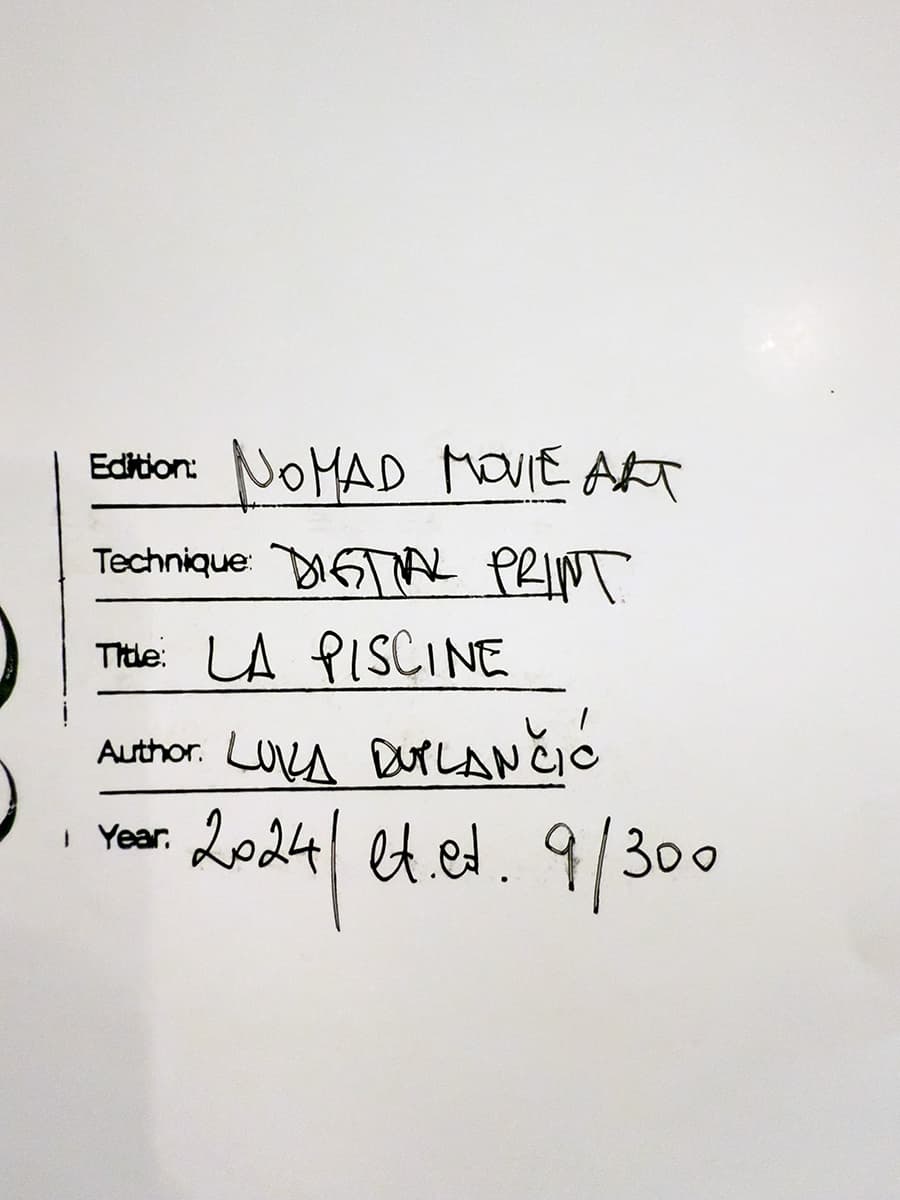 Edition: NOMAD MOVIE ART
Technique: DIGITAL PRINT
Title: LA PISCINE
Author: LUKA DUPLANČIĆ
Year: 2024/ et.ed. 9/300